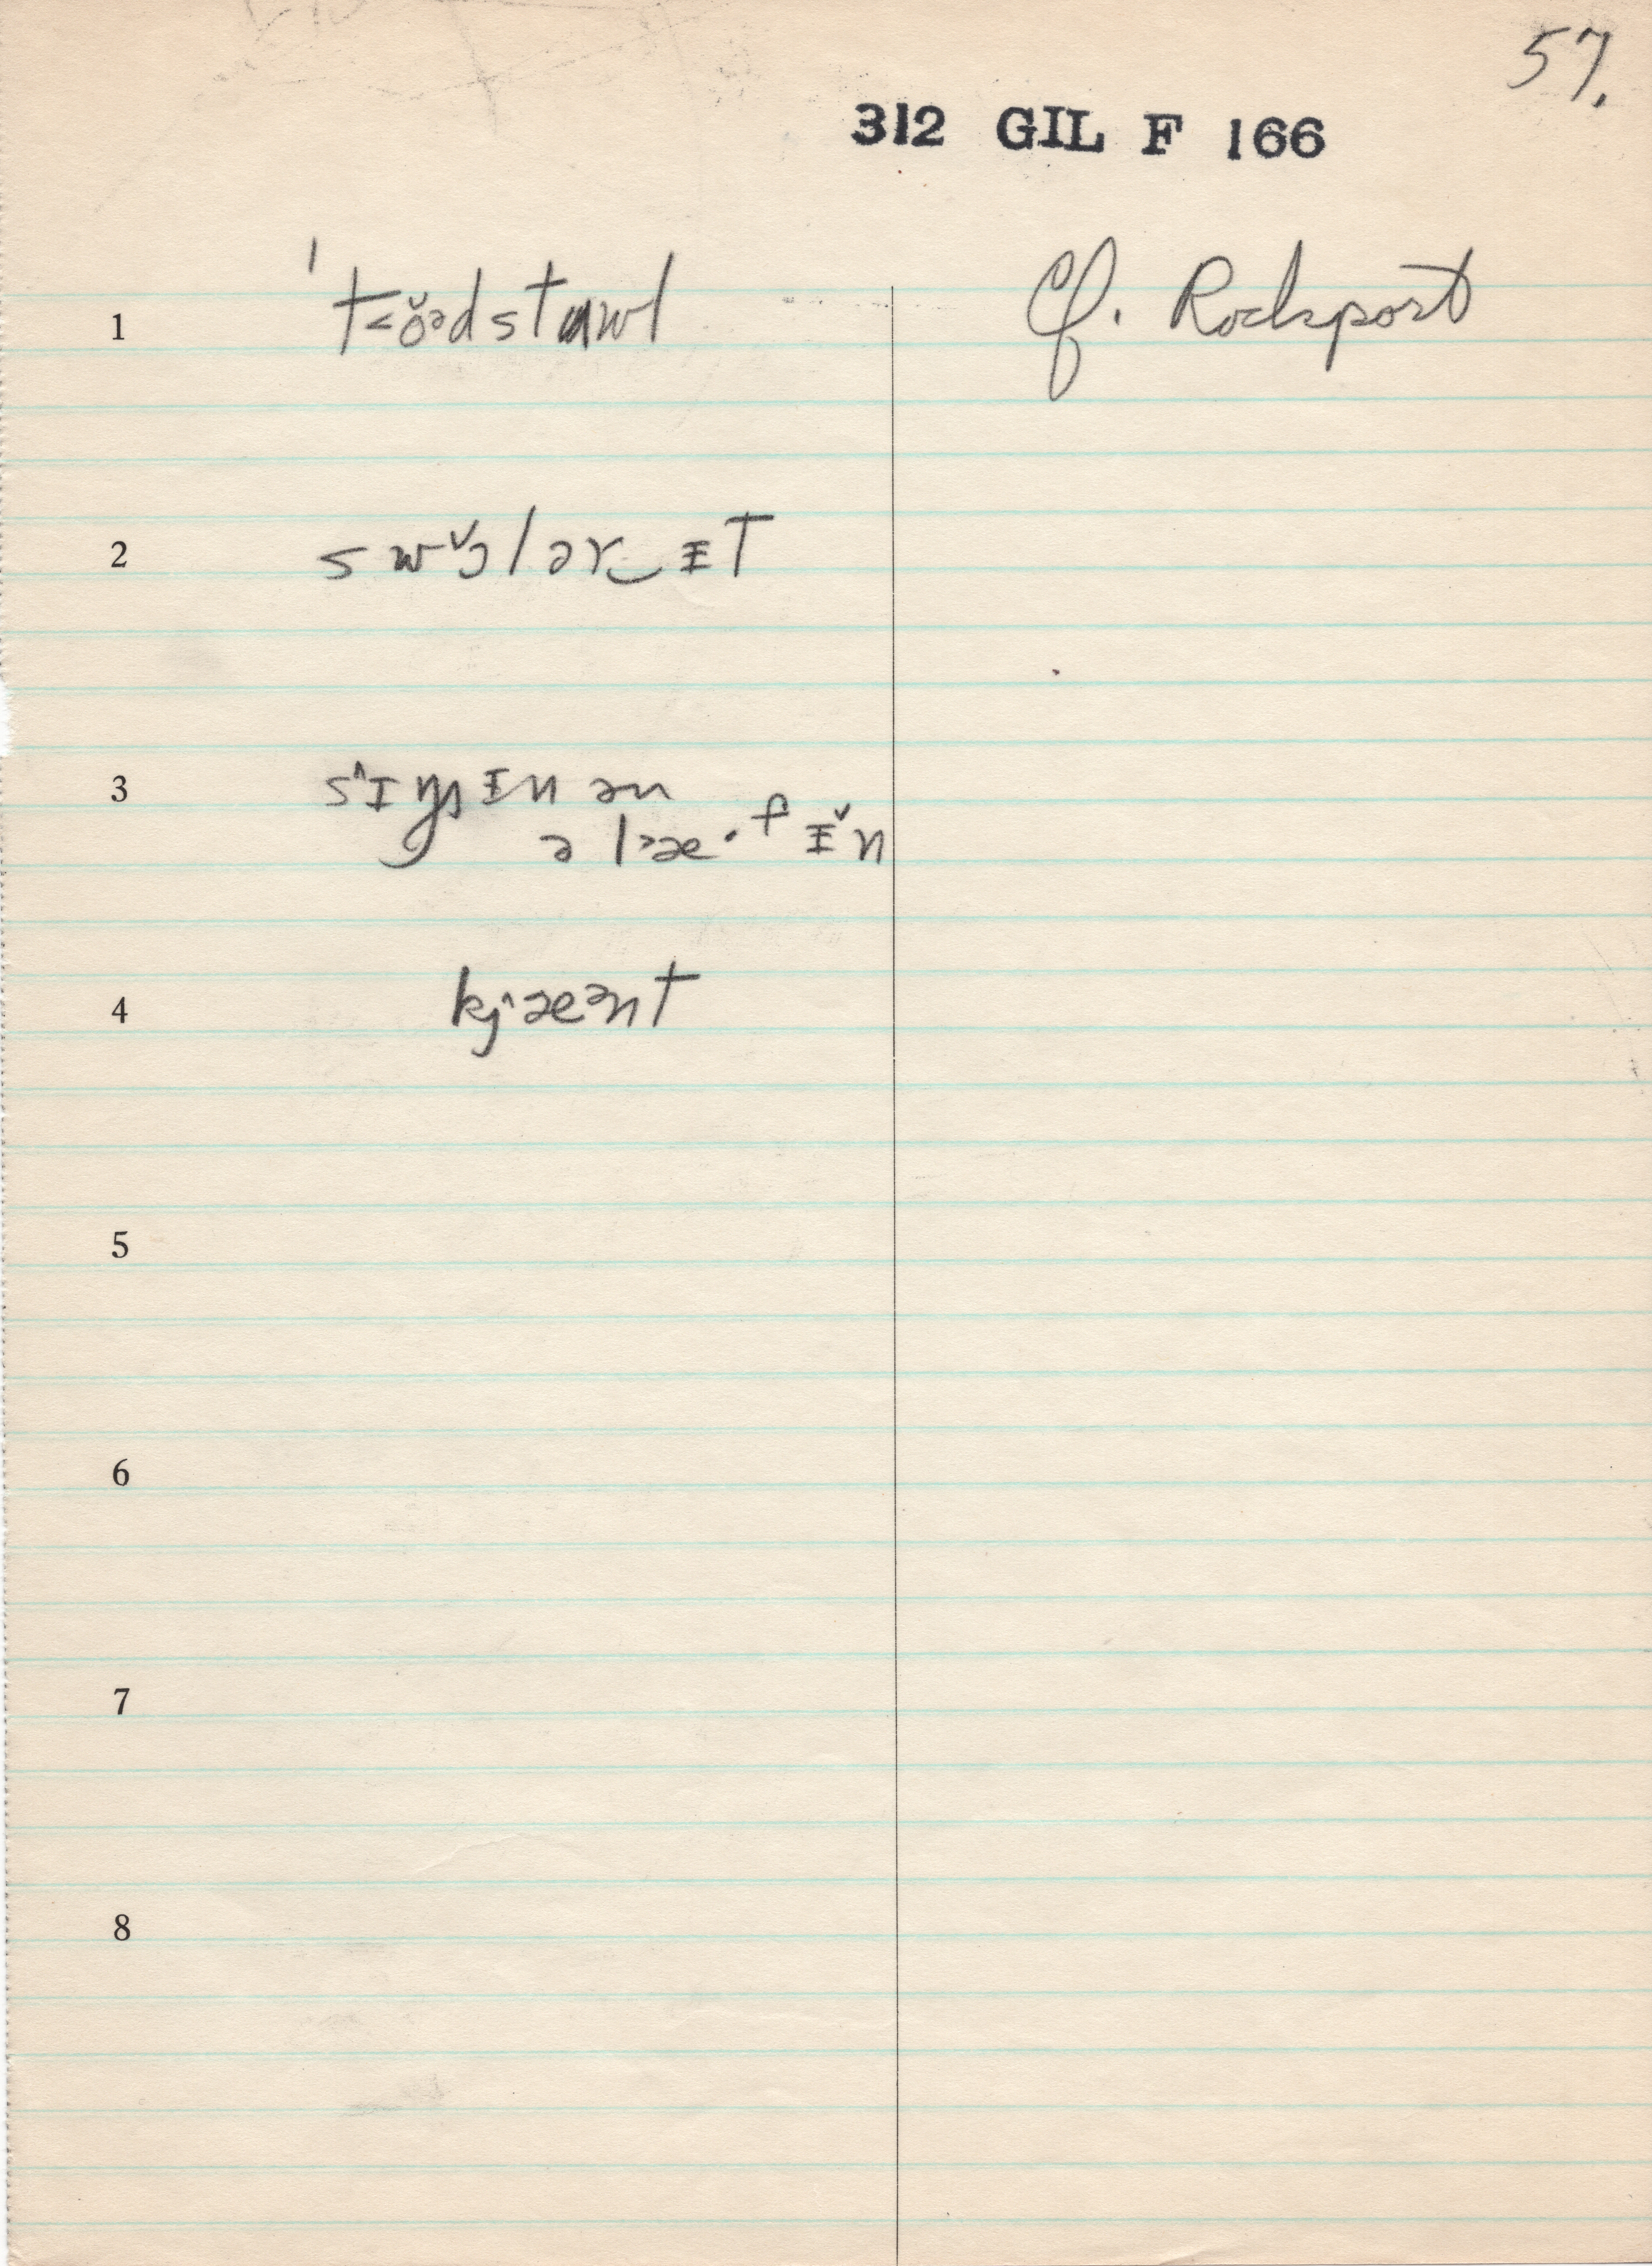 57.
312 GIL F 166
1 ˈt˂o̬ᵊdstuwl Cf. Rockport
2 swɔ̌lər‿ᵻT
3 s^ɪŋᵻn ən
ə l˃æ·fᵻ̌n
4 kj^æənt
5
6
7
8